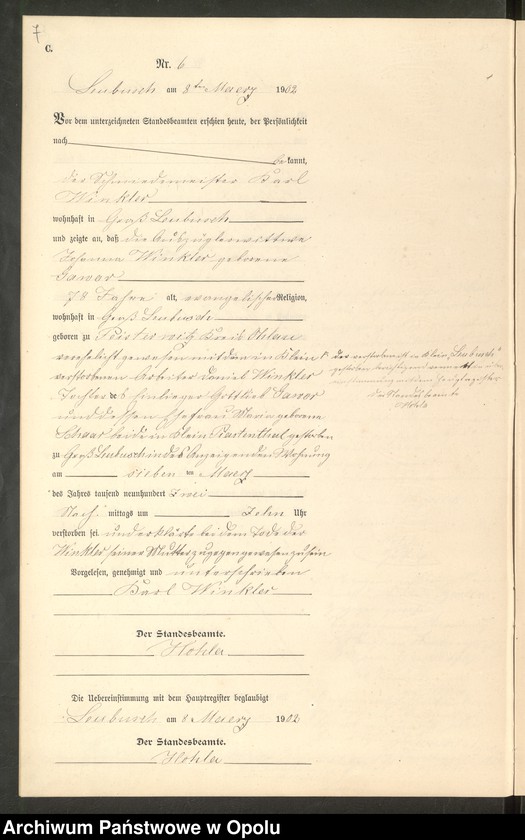 7
C.
Nr. 6
Leubusch am 8ten Maerz 1902
Vor dem unterzeichneten Standesbeamten erschien heute, der Persönlichkeit
nach
be kannt,
der Schmiedemeister Karl
Winkler
wohnhaft in Groß Leubusch
und zeigte an, daß die Auszüglerwittwe
Johanna Winkler geborene
Jawor
78 Jahre alt, evangelischer Religion,
wohnhaft in Groß Leubusch
geboren zu Peisterwitz Kreis Ohlau
verehelicht gewesen mit dem in Klein
verstorbenen Arbeiter Daniel Winkler
Tochter des Einlieger Gottlieb Jawor
und dessen Ehefrau Maria geborene
Schaar beide in Klein Piastenthal gestorben
zu Groß Leubusch in des Anzeigenden Wohnung
am sieben ten Maerz
des Jahres tausend neunhundert Zwei
Nach mittags um Zehn Uhr
verstorben sei und erklärte bei dem Tode der
Winkler seiner Mutter zugegen gewesen zu sein
Vorgelesen, genehmigt und unterschrieben
Karl Winkler
Der Standesbeamte.
Hohla
Die Uebereinstimmung mit dem Hauptregister beglaubigt
Leubusch am 8 Maerz 1902
Der Standesbeamte.
Hohla
der verstorben in Klein Leubusch
Der Standesbeamte
Hohla
Archiwum Państwowe w Opolu